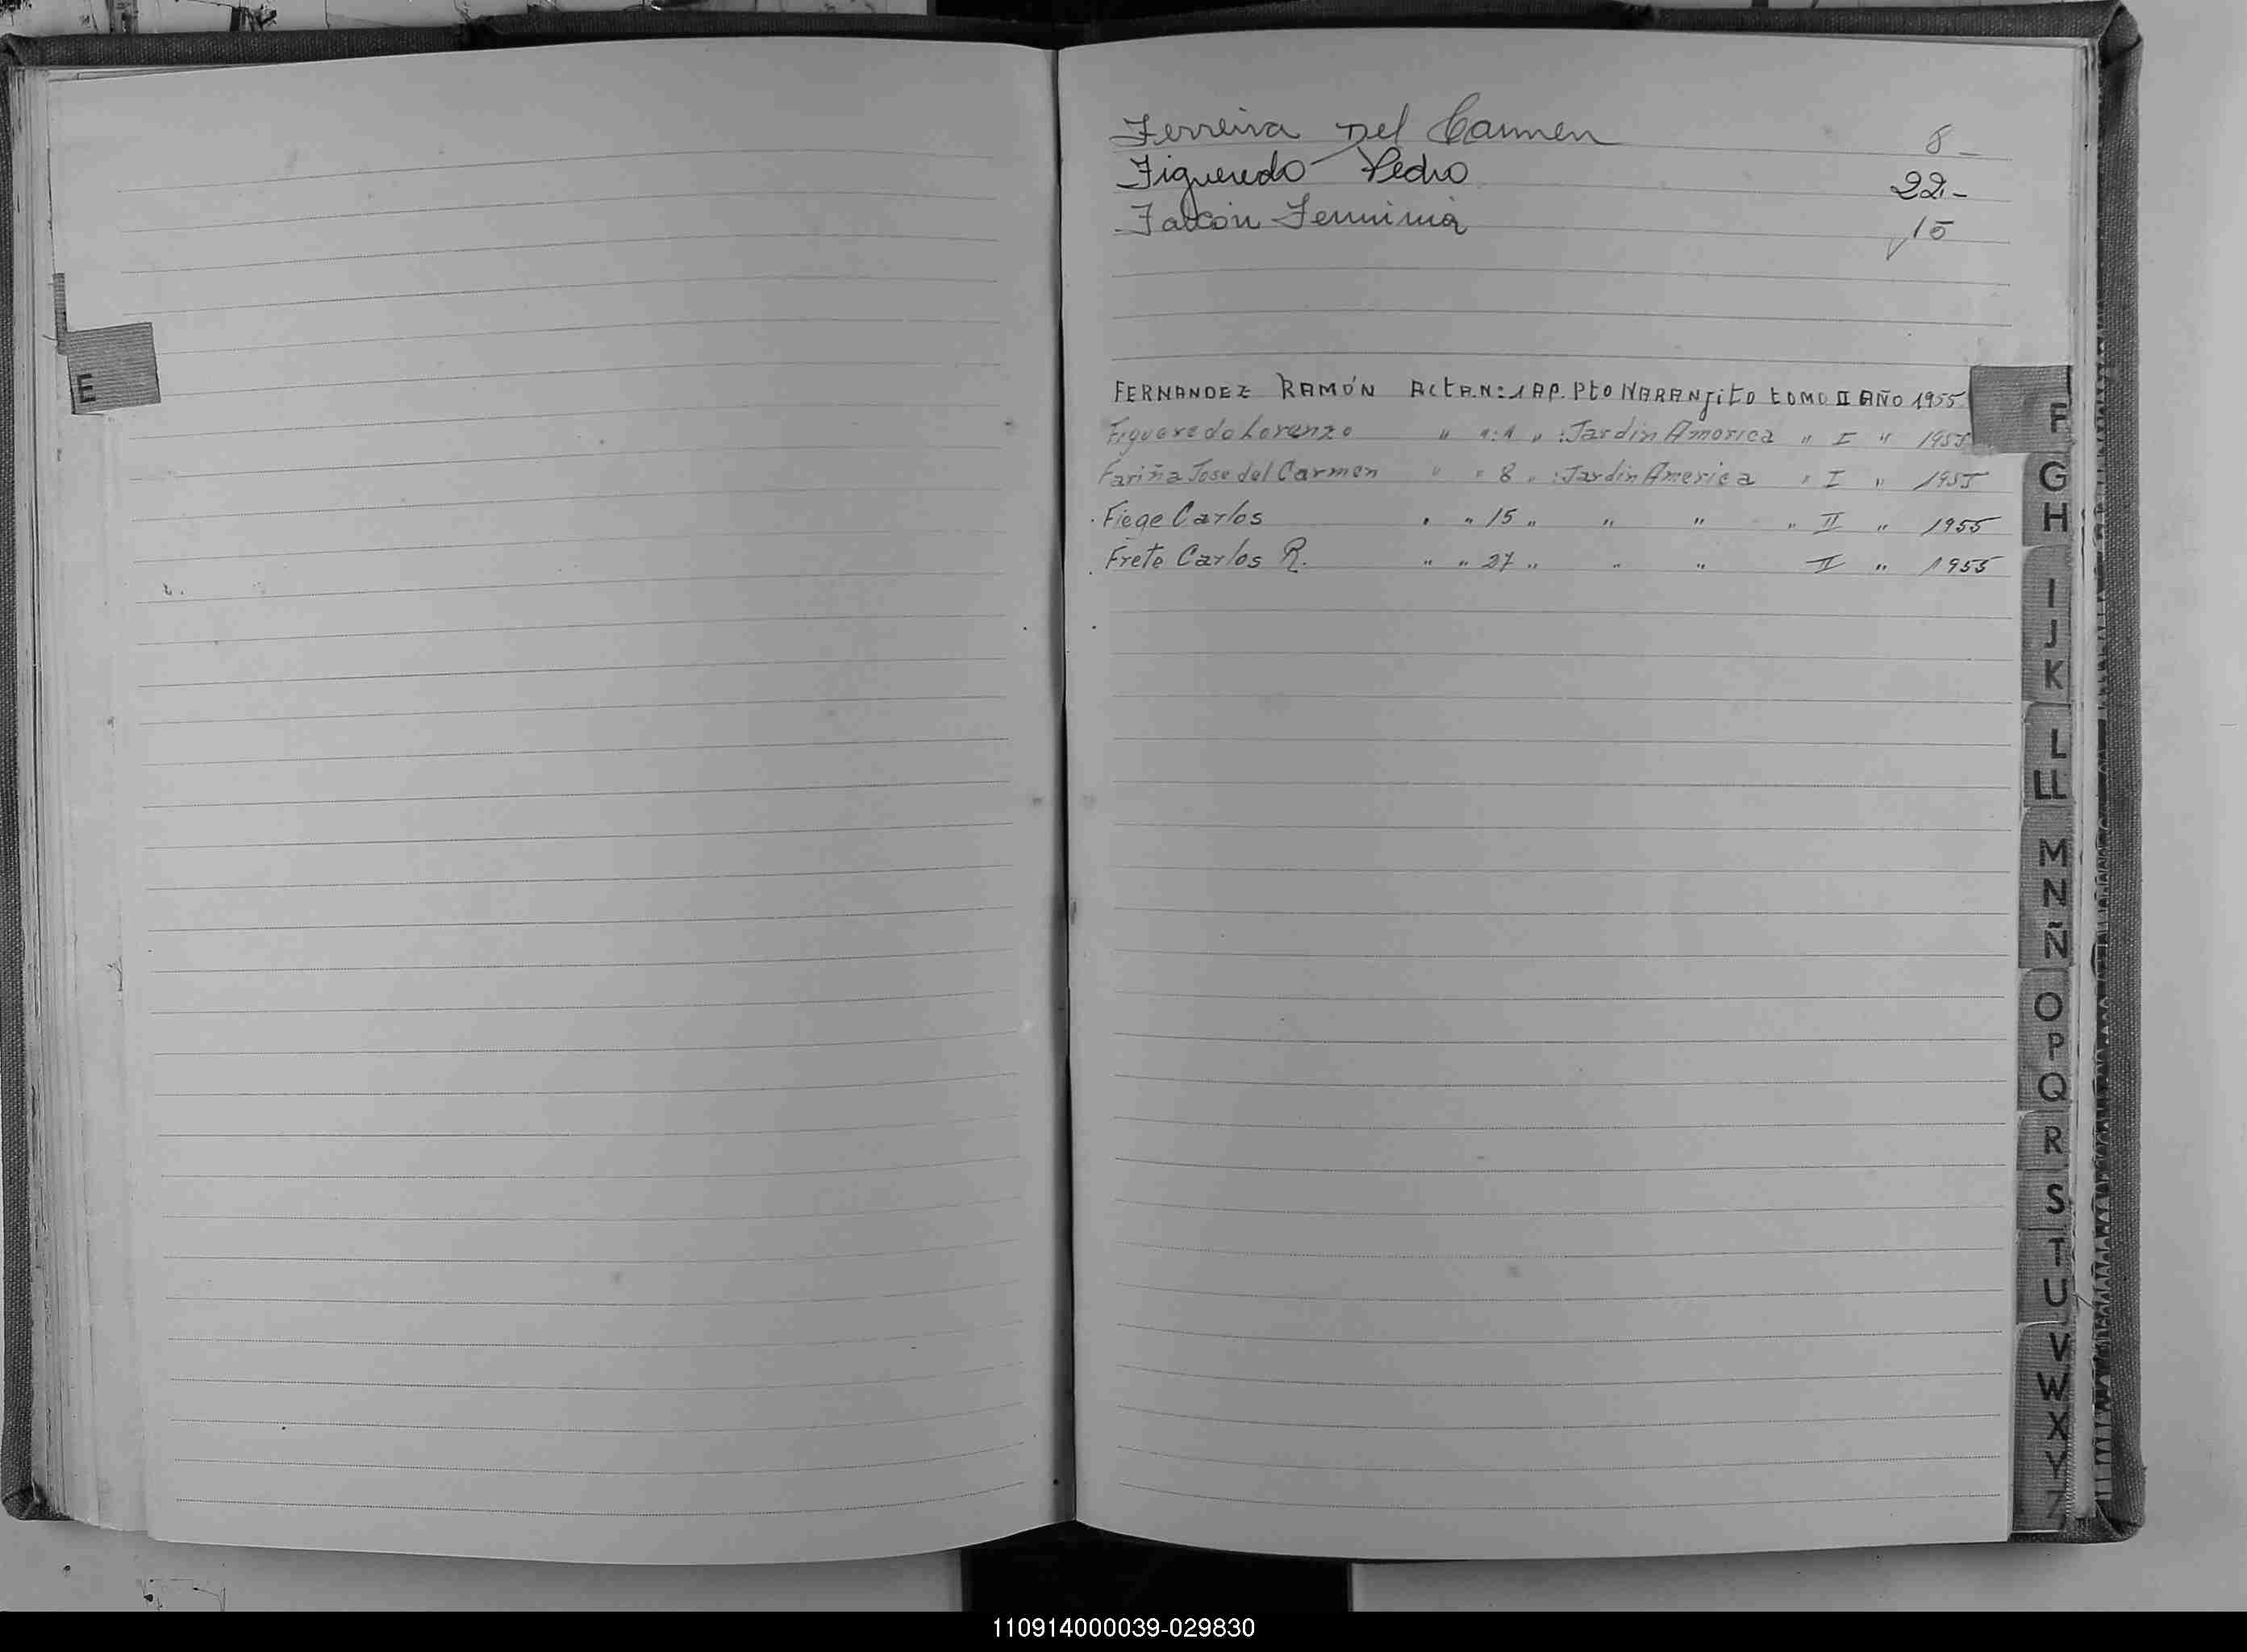 E
Ferreira Del Carmen 8 -
Figueredo Pedro 22.-
Falcón Fermina 15
FERNANDEZ RAMÓN ACtA.N:1 AP. Pto NARANjito tOMO II AÑO 1955
Figueredo Lorenzo " ":1 " :Jardin America " I " 1955
Fariña Jose del Carmen " " 8 " :Jardin America " I " 1955
Fiege Carlos " " 15 " " " " II " 1955
Frete Carlos R. " " 27 " " " II " 1955
F
G
H
I
J
K
L
LL
M
N
Ñ
O
P
Q
R
S
T
U
V
W
X
Y
Z
110914000039-029830